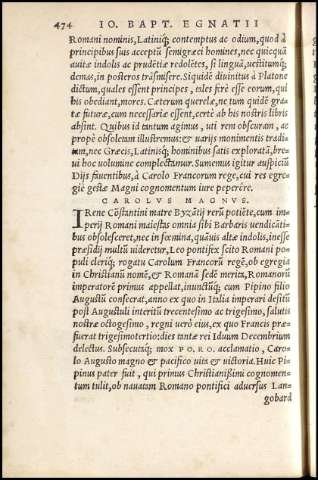 474 IO. BAPT. EGNATII
Romani nominis, Latiniq́; contemptus ac odium, quod à
principibus suis acceptũ semigræci homines, nec quicquã
auitæ indolis ac prudẽtiæ redolẽtes, si linguã, uestitumq́;
demas, in posteros trãsmisere. Siquidẽ diuinitus à Platone
dictum, quales essent principes, tales ferè esse eorum, qui
bis obediant, mores. Cæterum querelæ, ne tum quidẽ gra-
tæ futuræ, cum necessariæ essent, certè ab his nostris libris
absint. Quibus id tantum agimus, uti rem obscuram, ac
propè obsoletam illustremus: & uarijs monimentis tradi-
tam, nec Græcis, Latinisq́; hominibus satis exploratã, bre-
ui hoc uolumine complectamur. Sumemus igitur auspiciũ
Dijs fauentibus, à Carolo Francorum rege, cui res egre-
giè gestæ Magni cognomentum iure peperêre.
CAROLVS MAGNVS.
IRene Cõstantini matre Byzãtij rerũ potiẽte, cum im-
perij Romani maiestas omnia sibi Barbaris uendicati-
bus obsolesceret, nec in fœmina, quãuis altæ indolis, inesse
præsidij multũ uideretur, Leo pontifex scito Romani po-
puli cleriq́; rogatu Carolum Francorũ regẽ, ob egregia
in Christianũ nomẽ, & Romanã sedẽ merita, Romanorũ
imperatorẽ primus appellat, inunctũq́; cum Pipino filio
Augustũ consecrat, anno ex quo in Italia imperari desitũ
post Augustuli interitũ trecentesimo ac trigesimo, salutis
nostræ octogesimo, regni uerò eius, ex quo Francis præ-
fuerat trigesimotertio: dies tantæ rei Iduum Decembrium
delectus. Subsecutaq́; mox PO.RO. acclamatio, Caro-
lo Augusto magno & pacifico uita & uictoria. Huic Pi-
pinus pater fuit, qui primus Christianißimi cognomen-
tum tulit, ob nauatam Romano pontifici aduersus Lan-
gobard